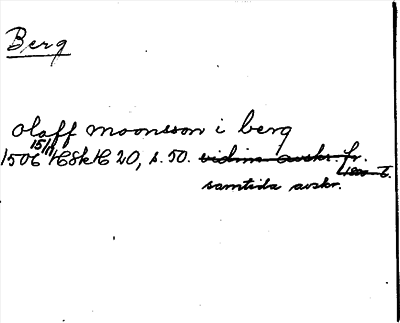 Berg
olaff moonsson i berg
1506 15/11 HSkH 20, s. 50. vidim. avskr. fr.
samtida avskr.